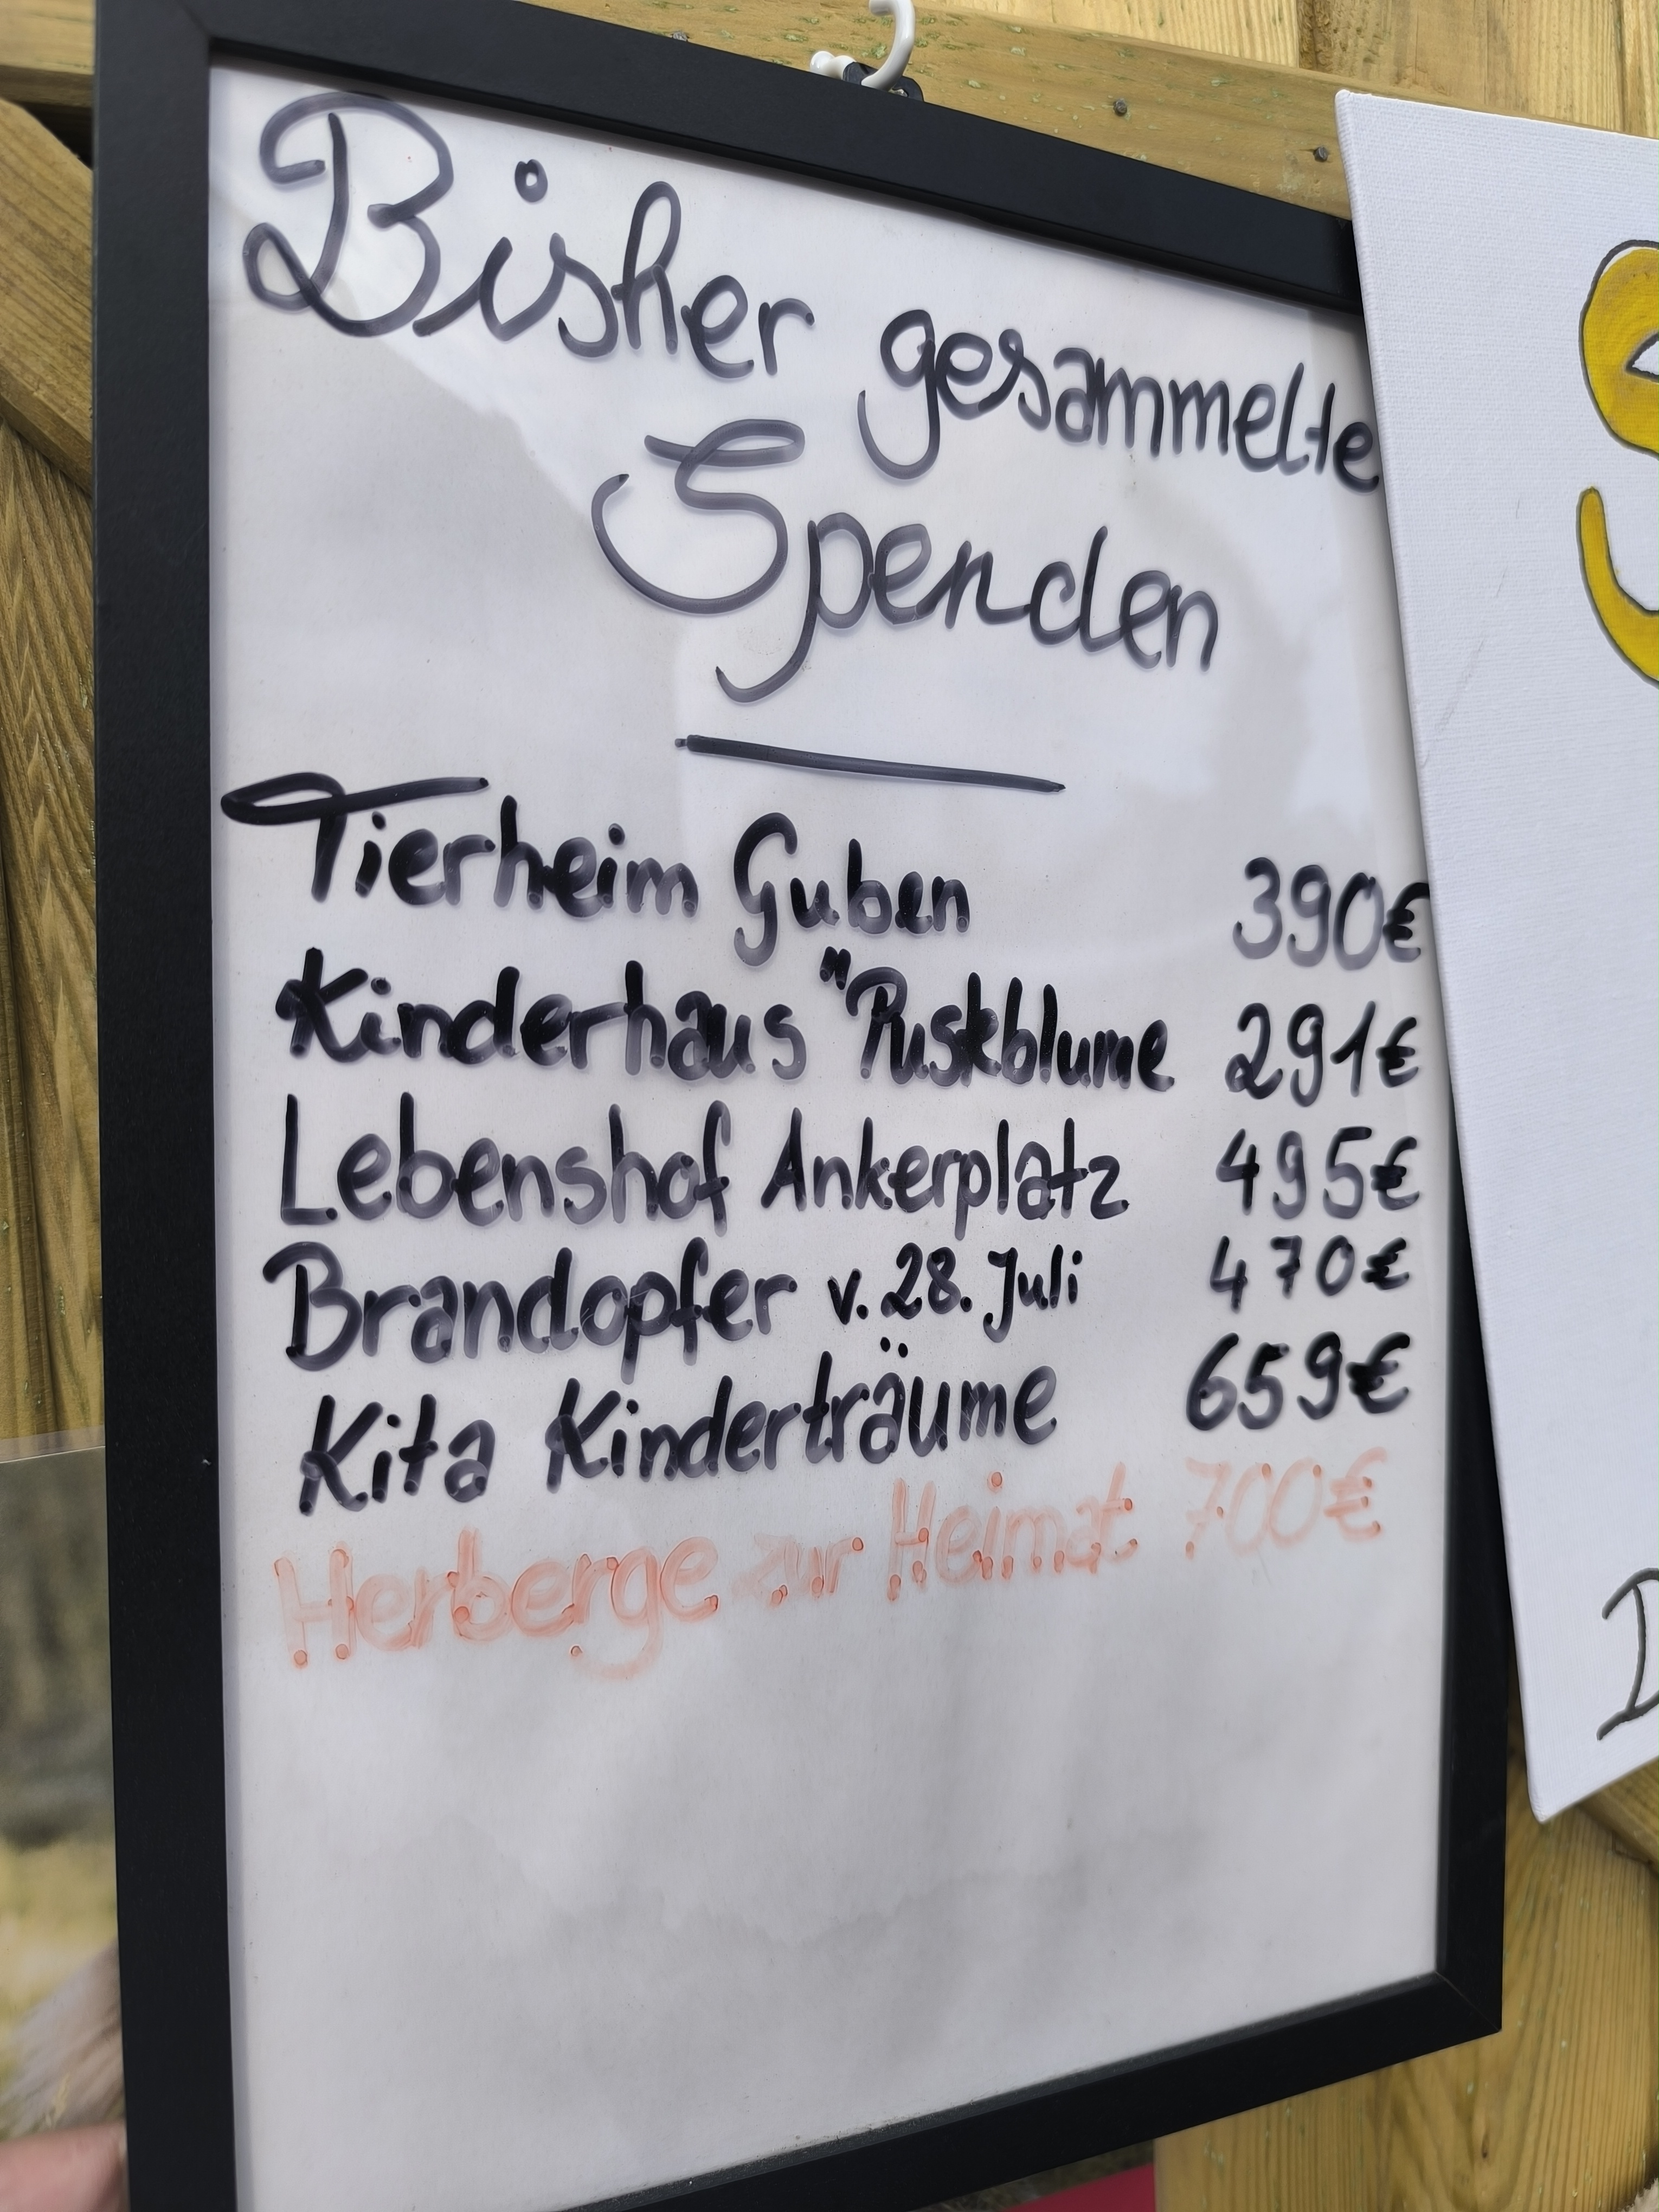 Bisher gesammelte
Spenden
Tierheim Guben 390€
Kinderhaus "Pusteblume 291€
Lebenshof Ankerplatz 495€
Brandopfer v. 28. Juli 470€
Kita Kinderträume 659€
Herberge zur Heimat 700€